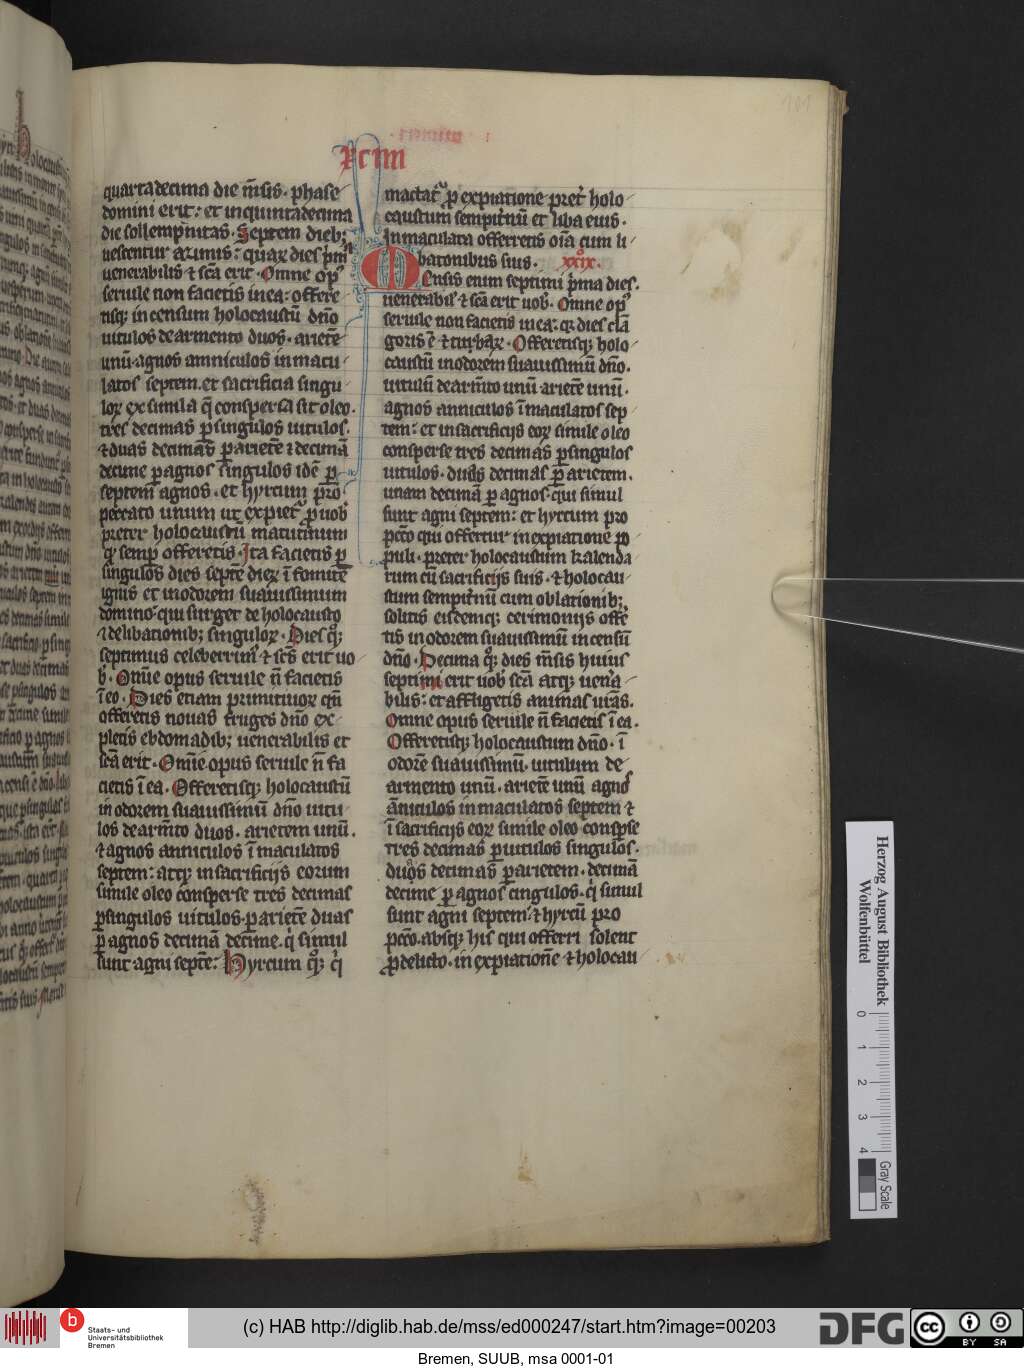 xciiii
quartadecima die m̅sis · phase
domini erit: et in quintadecima
die sollempnitas. Septem dieb;
uescentur azimis: quaꝝ dies p̓m⁹
uenerabilis ⁊ sc̅a erit · Omne op⁹
seruile non facietis in ea: offere
tisq; incensum holocaustu̅ dn̅o
uitulos de armento duos · ariete̅
unu̅ · agnos anniculos inmacu
latos septem. et sacrificia singu
loꝝ ex simila q̅ conspersa sit oleo.
tres decimas ꝑ singulos uitulos.
⁊ duas decimas ꝑ ariete̅ ⁊ decima̅
decime ꝑ agnos singulos ide̅ ꝑ
septem agnos · et hyrcum p̱ro
peccato unum ut expiet᷑ ꝓ uob̓
preter holocaustu̅ matutinum
q̅ semꝑ offeretis · Ita facietis ꝑ
singulos dies septe̅ dieꝝ i̅ fomite̅
ignis et in odorem suauissimum
domino · qui surget de holocausto
⁊ delibationib; singuloꝝ · Dies q̊q;
septimus celeberrim⁹ ⁊ sc̅s erit uo
b̓ · Om̅e opus seruile n̅ facietis
i̅ eo · Dies etiam primitiuoꝝ qn̅
offeretis nouas fruges dn̅o ex
pletis ebdomadib; uenerabilis et
sc̅a erit · Om̅e opus seruile n̅ fa
cietis i̅ ea · Offeretisq; holocaustu̅
in odorem suauissimu̅ dn̅o uitu
los de arm̅to duos · arietem unu̅ ·
⁊ agnos anniculos i̅maculatos
septem: atq; in sacrificijs eorum
simile oleo consperse tres decimas
ꝑ singulos uitulos · ꝑ ariete̅ duas
ꝑ agnos decima̅ decime · q̓ simul
sunt agni septe̅: Hyrcum q̊q; q̓
mactat᷑ ꝑ expiatione pret̓ holo
caustum sempit̓nu̅ et liba eius ·
Inmaculata offerretis oi̅a cum li
batonibus suis. xxix.
Mensis enim septimi p̓ma dies.
uenerabil̓ ⁊ sc̅a erit uob̓ · Omne op⁹
seruile non facietis in ea: q̓ dies cla̅
goris e̅ ⁊ tubaꝝ · Offeretisq; holo
caustu̅ in odorem suauissimu̅ dn̅o.
uitulu̅ de arm̅to unu̅ ariete̅ unu̅ ·
agnos anniculos i̅maculatos sep
tem: et in sacrificijs eoꝝ simile oleo
consperse tres decimas ꝑ singulos
uitulos · duas decimas ꝑ arietem.
unam decima̅ ꝑ agnos · qui simul
sunt agni septem: et hyrcum pro
pc̅c̅o qui offertur in expiatione po
puli · preter holocaustum kalenda
rum cu̅ sacrificijs suis · ⁊ holocau
stum sempit̓nu̅ cum oblationib;
solitis eisdemq; cerimonijs offe
tis in odorem suauissimu̅ incensu̅
dn̅o · Decima q̊q; dies m̅sis huius
septimi erit uob̓ sc̅a atq; uen̓a
bilis: et affligetis animas ur̅as.
Omne opus seruile n̅ facietis i̅ ea.
Offeretisq; holocaustum dn̅o · i̅
odore̅ suauissimu̅ · uitulum de
armento unu̅ · ariete̅ unu̅ agnos
a̅niculos inmaculatos septem ⁊
i̅ sacrificijs eoꝝ simile oleo consꝑse
tres decimas ꝑ uitulos singulos.
duos decimas ꝑ arietem · decima̅
decime ꝑ agnos cingulos · q̓ simul
sunt agni septem: ⁊ hyrcu̅ pro
pc̅c̅o. absq; his qui offerri solent
ꝓ delicto · in expiatione̅ ⁊ holocau
Herzog August Bibliothek
Wolfenbüttel
0 1 2 3 4
Gray Scale
b Staats- und
Universitätsbibliothek
Bremen
(c) HAB http://diglib.hab.de/mss/ed000247/start.htm?image=00203
DFG
cc BY SA
Bremen, SUUB, msa 0001-01